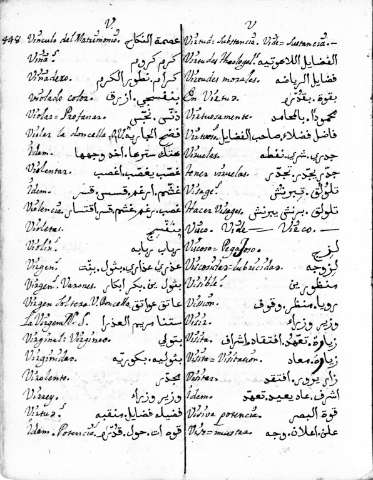 V
448. Vinculo del Matrimonio. عصمة النكاح
Viña. كرم كروم
Viñadero. كرّام، نطور الكرم
Violado color. بنفسجي، ازرق
Violar. Profanar. دنّس، نجّس
Violar la doncella. فضح الجارية
Idem. هتك سترها، اخذ وجهها
Violentar. غصب يغصب، اغصب
Idem.
Violencia. غصب
Violetas. بنفسج
Violin. رباب ربابه
Virgen. عذري عذاري، بتول، بنت
Virgen. Varones. بكر ابكار
Virgen Soltera. V. Doncella. عاتق عواتق
La Virgen N. S. ستنا مريم العذرا
Virginal: Virgineo. بتولي
Virginidad. بتوليه، بكوريه
Virolento. مجدّر
Virrey. وزير وزراء
Virtud. فضيله فضايل، منقبه
Idem. Potencia. قوه ات، حول، قدره
V
Virtud. Substancia. Vide = Sustancia. —
Virtudes theologal. الفضايل اللاهوتيه
Virtudes morales. فضايل الرياضه
En Virtud. بقوة، بقدرة
Virtuosamente. بالمحامد
Virtuoso. فاضل فضلاء، صاحب الفضايل
Viruelas. جدري
tener viruelas. جدّر يجدّر، تجدّر
Visage.
Hacer Visages.
Visco. Vide — Vizco. —
Viscoso = Pegajoso. لزج
Viscosidad = Lubricidad. لزوجه
Visible. منظور ين
Vision. رويا، منظر، وقوف
Visir. وزير وزراء
Visita. زيارة، تعهّد، افتقاد، اشراف
Visita = Visitacion. زياره، معاد
Visitar. زار يزور، افتقد
Idem. اشرف، عاد يعيد، تعهّد
Visiva potencia. قوة البصر
Viso = muestra. علن، اعلان، وجه